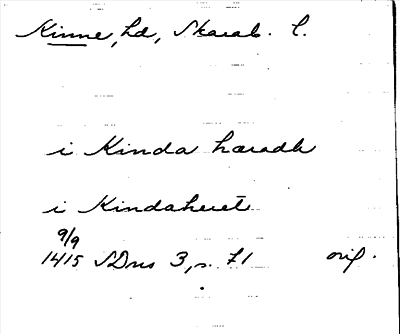 Kinne, hd, Skarab. l.
i Kinda haradh
i Kindaheret
9/9
1415 SDns 3, s. 71 orig.